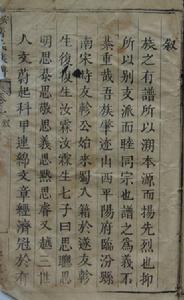 叙
族之有譜所以溯本源而揚先烈也抑
所以別支派而睦同宗也譜之為義不
綦重哉吾族肇迹山西平陽府臨汾縣
南宋時友軫公始來蜀入籍於遂友軫
生復 生汝霖汝霖生七子曰思聰思
明思恭思敬思義思默思睿又越三世
人文蔚起科甲連綿文章經濟冠於有